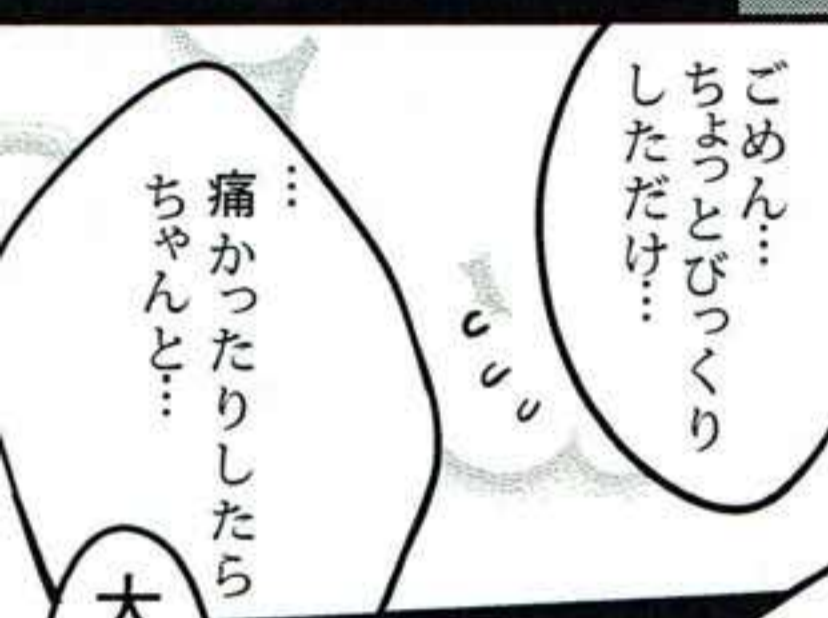 ごめん…
ちょっとびっくり
しただけ…
…
痛かったりしたら
ちゃんと…
大